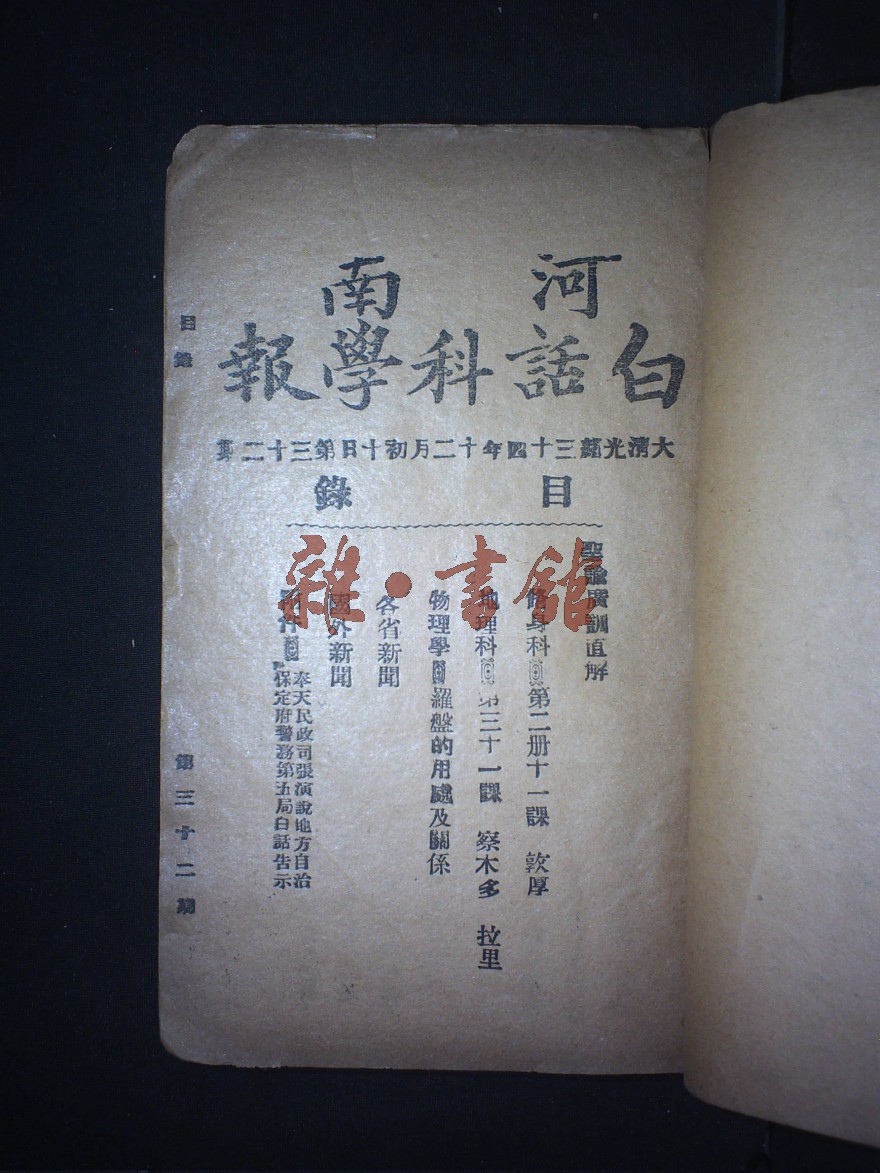 河南
白話科學報
大清光緒三十四年十二月初十日第三十二期
目錄
聖諭廣訓直解
修身科 第二册十一課 敦厚
地理科 第三十一課 察木多 拉里
物理學 羅盤的用處及關係
各省新聞
國外新聞
附件 奉天民政司張演說地方自治
保定府警務第五局白話告示
目錄
第三十二期
雜·書館